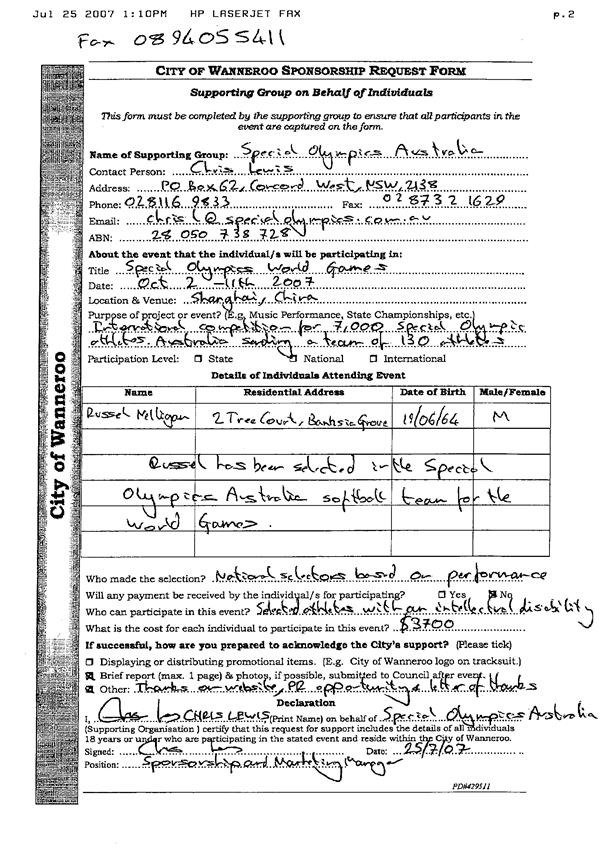 Jul 25 2007 1:10PM HP LASERJET FAX p.2
Fax 0894055411
CITY OF WANNEROO SPONSORSHIP REQUEST FORM
Supporting Group on Behalf of Individuals
This form must be completed by the supporting group to ensure that all participants in the
event are captured on the form.
Name of Supporting Group: Special Olympics Australia
Contact Person: Chris Lewis
Address: PO Box 62, Concord West, NSW, 2138
Phone: 028116 9833 Fax: 02 8732 1629
Email: chris l@specialolympics.com.au
ABN: 28 050 738 728
About the event that the individual/s will be participating in:
Title Special Olympics World Games
Date: Oct 2 - 11th 2007
Location & Venue: Shanghai, China
Purpose of project or event? (E.g, Music Performance, State Championships, etc.)
International competition for 7,000 Special Olympic
athletes. Australia sending a team of 130 athletes
Participation Level: State National International
Details of Individuals Attending Event
Name Residential Address Date of Birth Male/Female
Russel Milligan 2 Tree Court, Banksia Grove 19/06/64 M
Russel has been selected in the Special
Olympics Australia softball team for the
World Games.
City of Wanneroo
Who made the selection? National selectors based on performance
Will any payment be received by the individual/s for participating? Yes No
Who can participate in this event? Selected athletes with an intellectual disability
What is the cost for each individual to participate in this event? $3700
If successful, how are you prepared to acknowledge the City's support? (Please tick)
Displaying or distributing promotional items. (E.g. City of Wanneroo logo on tracksuit.)
Brief report (max. 1 page) & photos, if possible, submitted to Council after event.
Other: Thanks on website, PR opportunity, letter of thanks
Declaration
I, CHRIS LEWIS (Print Name) on behalf of Special Olympics Australia
(Supporting Organisation) certify that this request for support includes the details of all individuals
18 years or under who are participating in the stated event and reside within the City of Wanneroo.
Signed: Date: 25/7/07
Position: Sponsorship and Marketing Manager
PD#429511